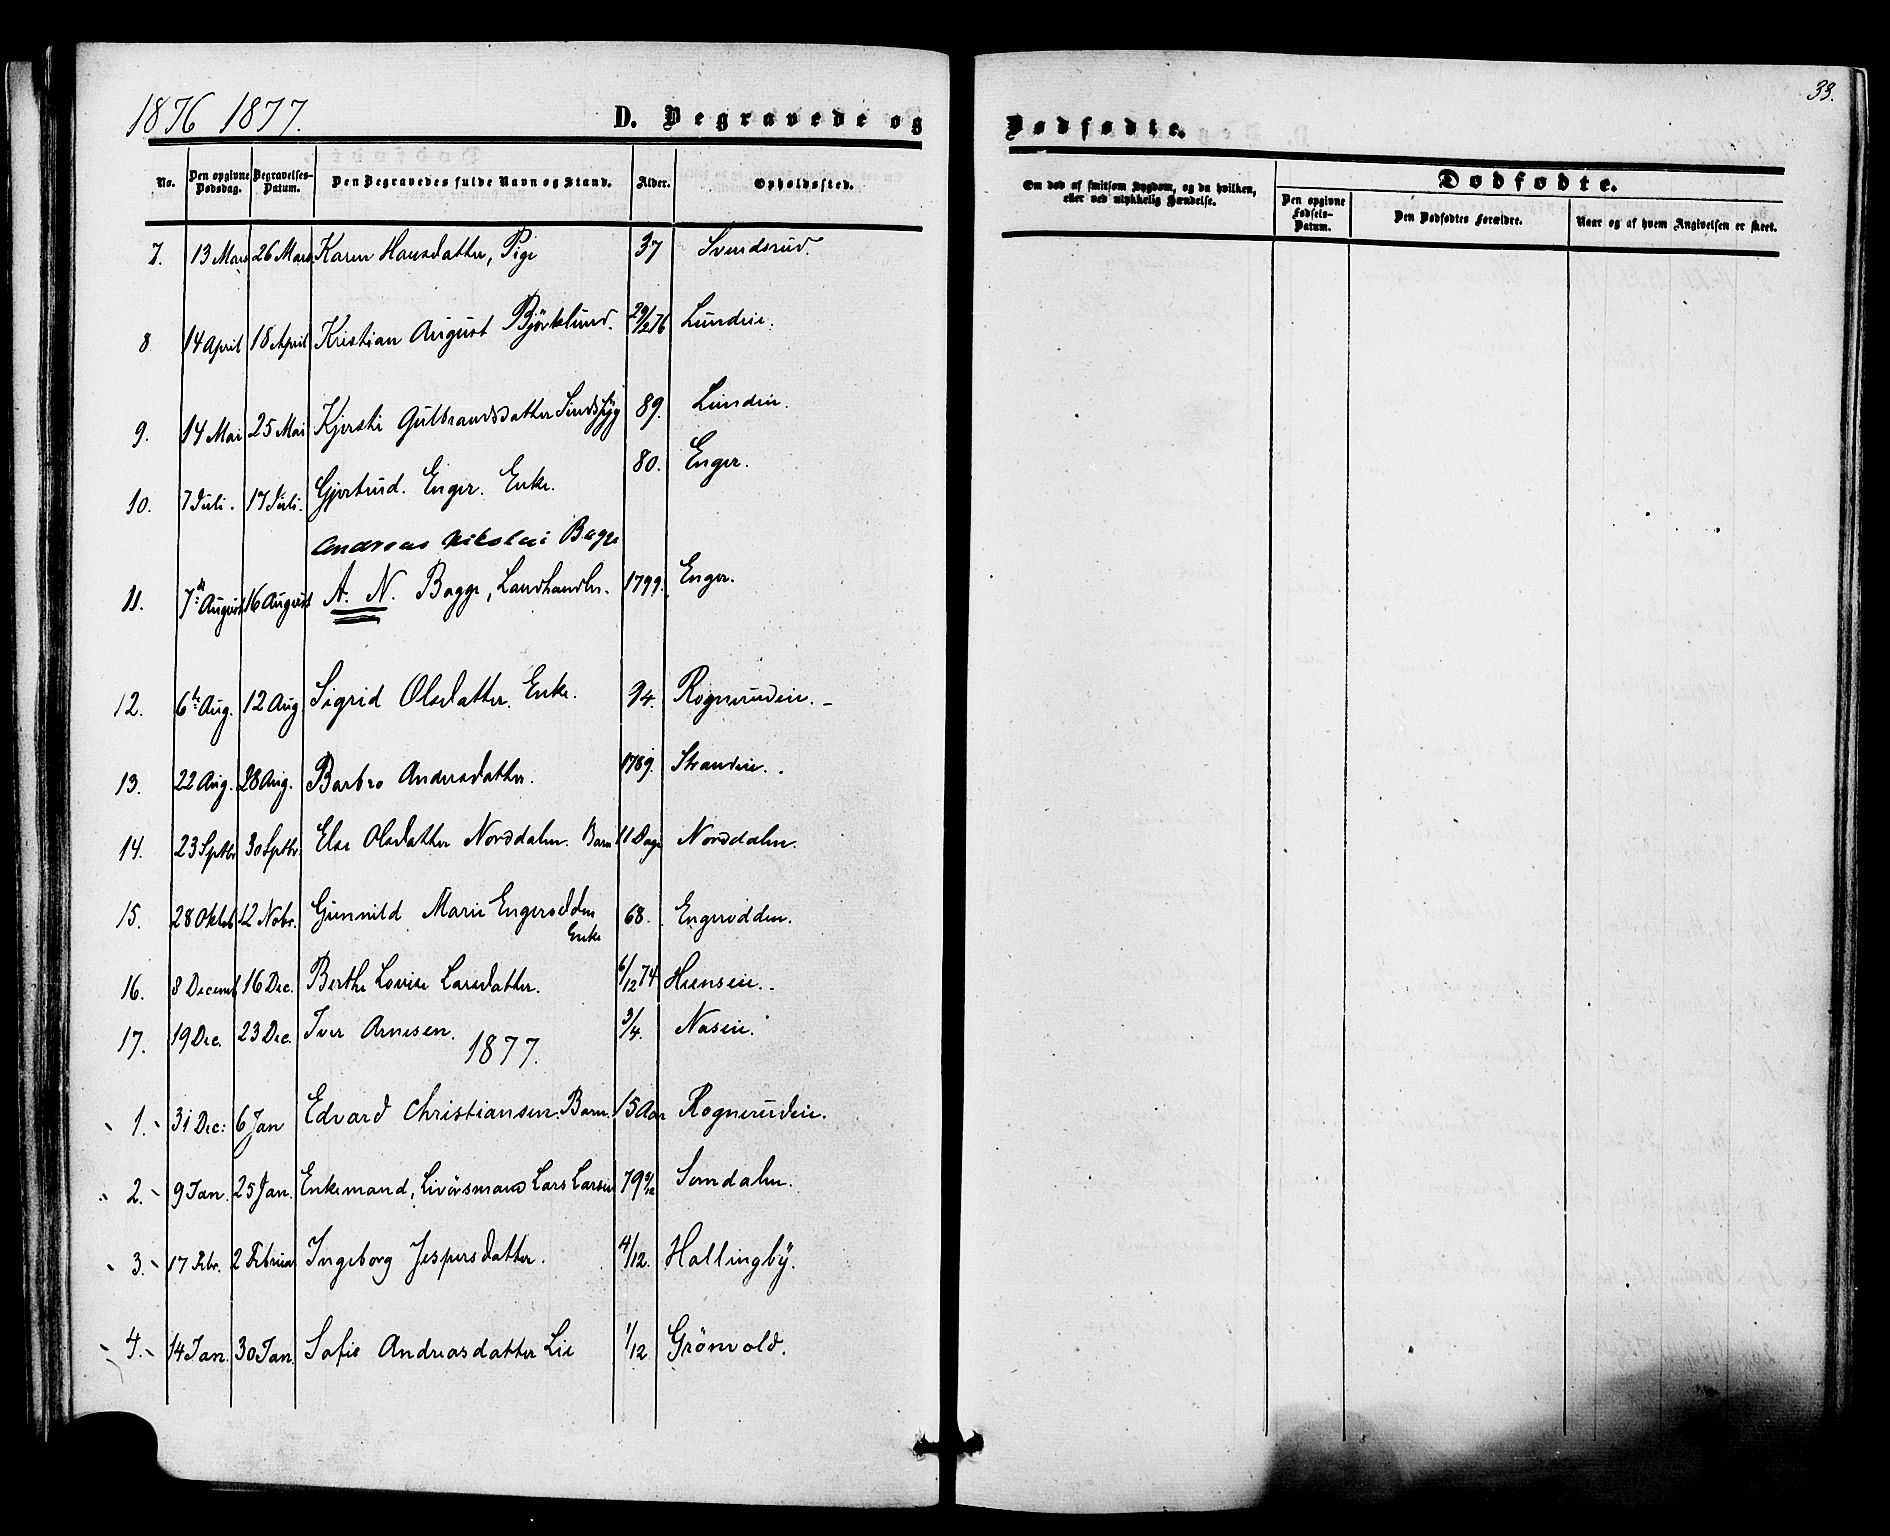 1876 1877.
D. Begravede og
Dødfødte.
33.
No.
Den opgivne Dødsdag.
Begravelses-Datum.
Den Begravedes fulde Navn og Stand.
Alder.
Opholdssted.
Om død af smitsom Sygdom, og da hvilken, eller ved ulykkelig Hændelse.
Dødfødte.
Den opgivne Fødsels-Datum.
Den Dødfødtes Forældre.
Naar og af hvem Angivelsen er skeet.
7. 13 Mars 26 Mars Karen Hansdatter, Pige 37 Svendsrud.
8 14 April 18 April Kristian August Björklund. 29/2 76 Lundeie.
9. 14 Mai 25 Mai Kjersti Gulbrandsdatter Sindssyg 89. Lundeie.
10. 7 Juli. 17 Juli. Gjertrud. Enger. Enke. 80. Enger.
Andreas Nikolai Bagge
11. 7de August 16 August A. N. Bagge, Landhandler. 1799. Enger.
12. 6te Aug. 12 Aug Sigrid Olsdatter. Enke. 94. Rognerudeie.
13. 22 Aug. 28 Aug. Barbro Andersdatter. 1789. Strandeie.
14. 23 Sptbr 30 Sptbr. Else Olsdatter Norddalen. Barn 11 Dage Norddalen.
15. 28 Oktob 12 Nobr. Gunnild Marie Engerodden Enke 68. Engerodden.
16. 8 Decemb 16 Dec. Berthe Lovise Larsdatter. 6/12 74 Heenseie.
17. 19 Dec. 23 Dec. Iver Arnesen. 3/4. Naseie.
1877.
1. 31 Dec: 6 Jan Edvard Christiansen. Barn. 15 Aar Rognerudeie.
2. 9 Jan. 25 Jan. Enkemand, Livörsmand Lars Larsen 79 Somdalen.
3. 17 Febr. 2 Februar Ingeborg Jespersdatter. 4/12. Hallingby.
4. 14 Jan. 30 Jan. Sofie Andreasdatter Lie 1/12 Grönvold.